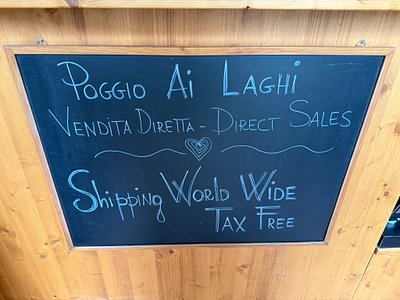 Poggio Ai Laghi
Vendita Diretta - Direct Sales
Shipping World Wide
Tax Free